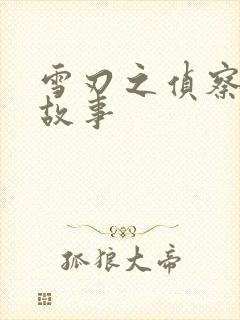 雪刃之偵察
故事
孤狼大帝